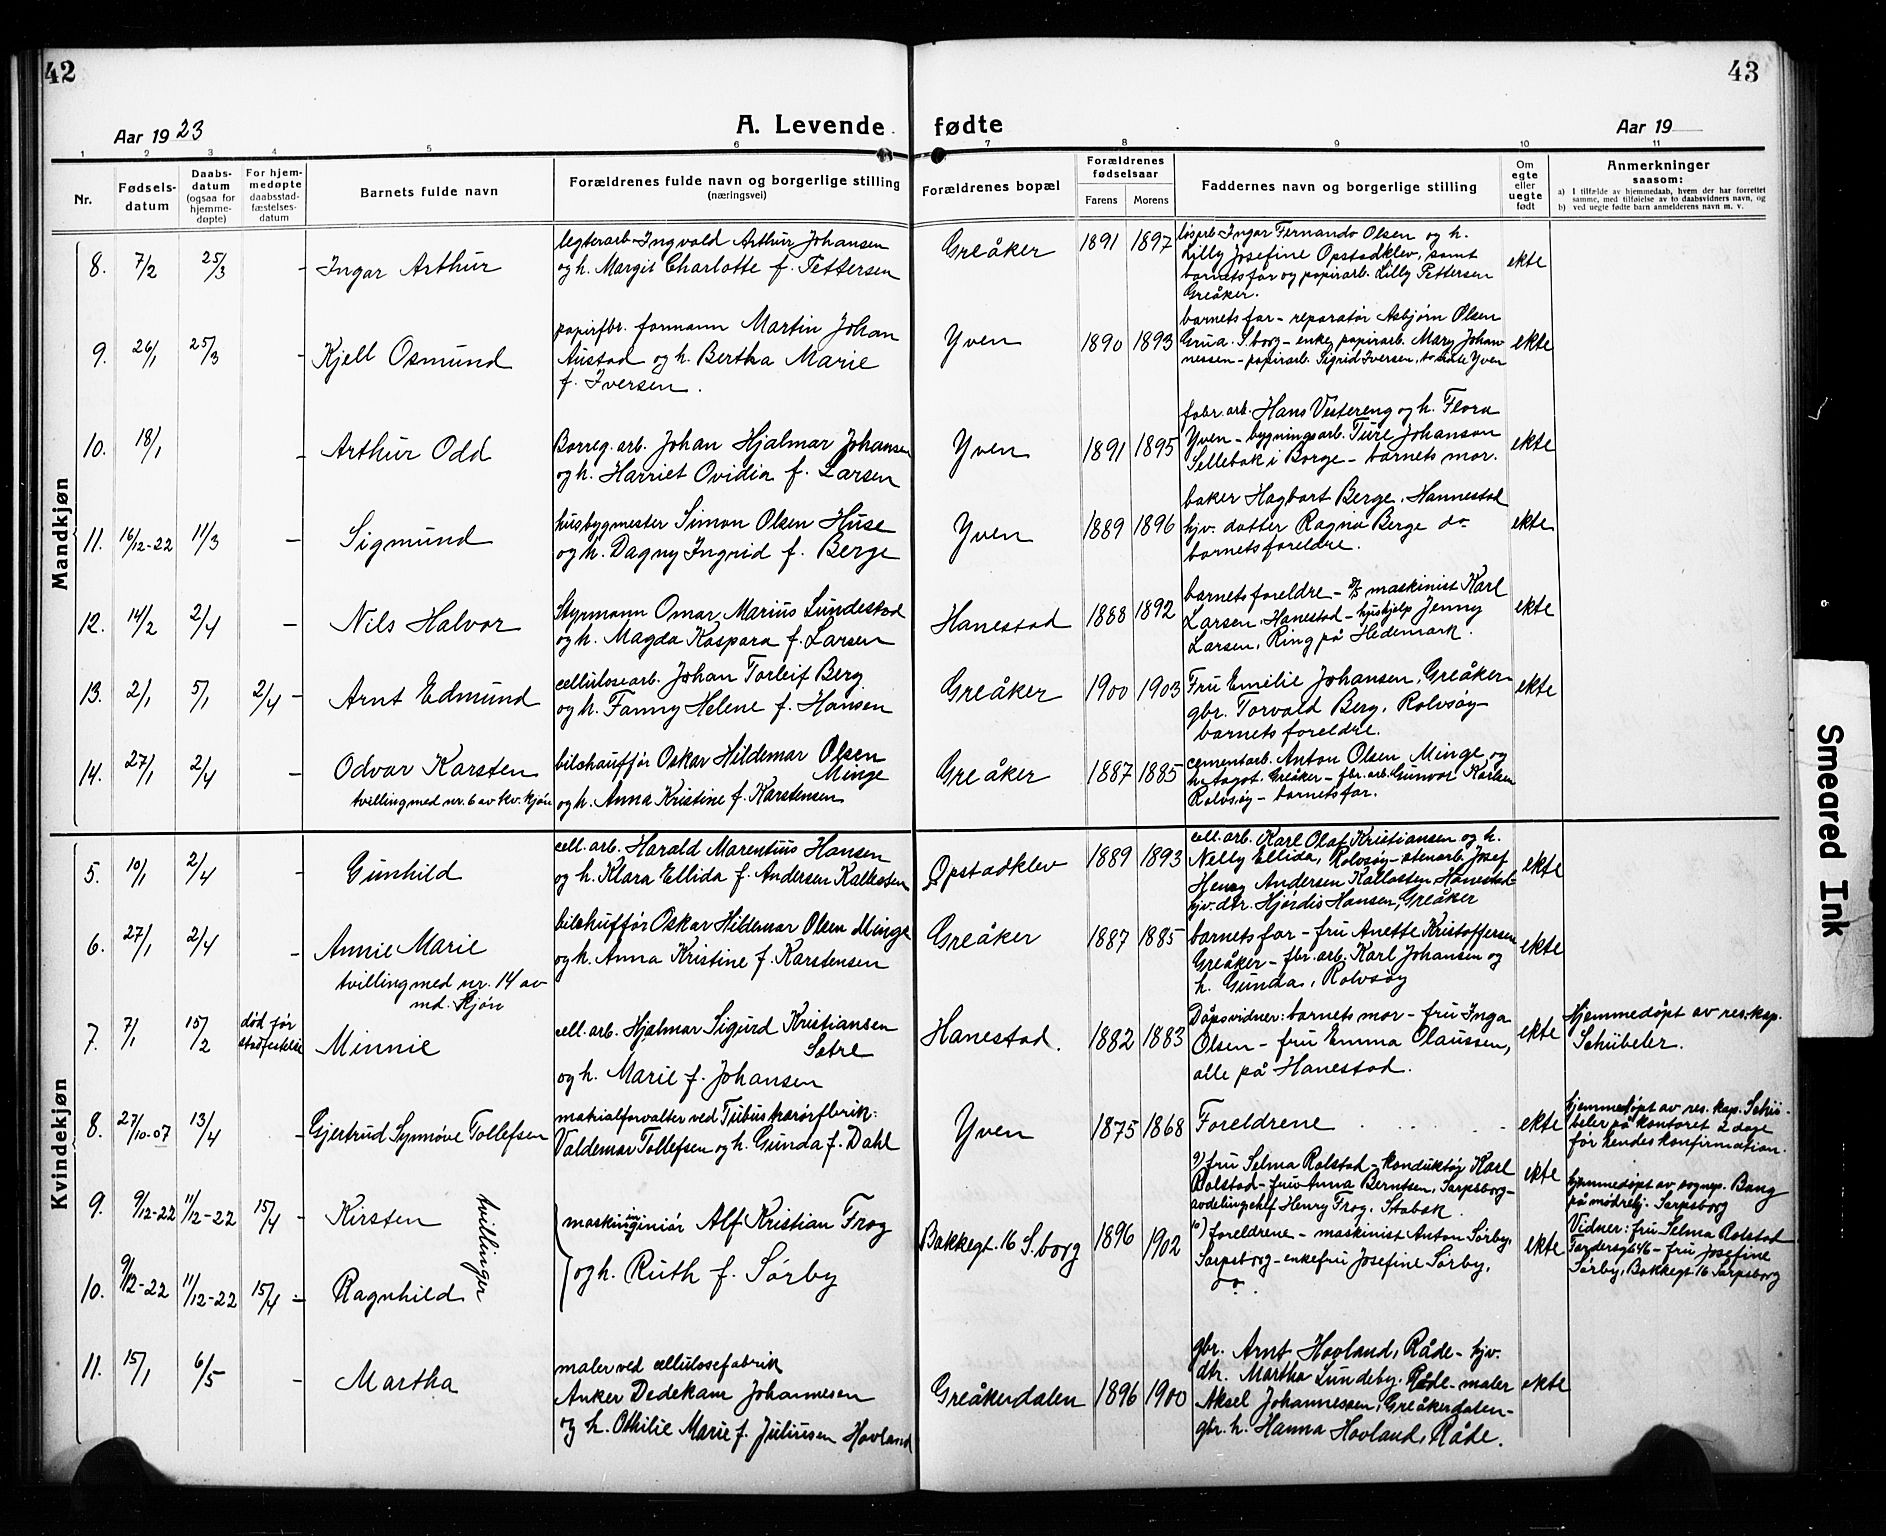 42
43
Aar 1923
A. Levende fødte
Aar 19
1 2 3 4 5 6 7 8 9 10 11
Nr.
Fødsels-
datum
Daabs-
datum
(ogsaa for
hjemme-
døpte)
For hjem-
medøpte
daabsstad-
fæstelses-
datum
Barnets fulde navn
Forældrenes fulde navn og borgerlige stilling
(næringsvei)
Forældrenes bopæl
Forældrenes
fødselsaar
Farens Morens
Faddernes navn og borgerlige stilling
Om
egte
eller
uegte
født
Anmerkninger
saasom:
a) I tilfælde av hjemmedaab, hvem der har forrettet
samme, med tilføielse av to daabsvidners navn, og
b) ved uegte fødte barn anmelderens navn m. v.
Mandkjøn
8. 7/2 25/3 - Ingar Arthur
Ingvald Arthur Johansen
og h. Margit Charlotte f. Pettersen
Greåker 1891 1897
Ingar Fernando Olsen og h.
Lilly Josefine Opstadklev, samt
barnets far og papirarb. Lilly Pettersen
Greåker.
ekte
9. 26/1 25/3 - Kjell Osmund
papirfbr. formann Martin Johan
Austad og h. Bertha Marie
f. Iversen.
Yven 1890 1893
barnets far - reparatør Asbjørn Olsen
Grina. S.borg - enke papirarb. Mary Johan-
nessen - papirarb. Sigrid Iversen, Yven
ekte
10. 18/1 - Arthur Odd
Borreg. arb. Johan Hjalmar Johansen
og h. Harriet Ovidia f. Larsen
Yven 1891 1895
fabr. arb. Hans Vestereng og h. Flora
Yven - bygningsarb. Ture Johanson
Sellebak i Borge - barnets mor.
ekte
11. 16/12-22 11/3 - Sigmund
husbygmester Simon Olsen Huse
og h. Dagny Ingrid f. Berge
Yven 1889 1896
baker Hagbart Berge, Hannestad
hjv. datter Ragna Berge do
barnets foreldre.
ekte
12. 14/2 2/4 - Nils Halvor
Styrmann Omar Marius Lundestad
og h. Magda Kaspara f. Larsen
Hanestad 1888 1892
barnets foreldre - maskinist Karl
Larsen, Hanestad - hushjelp Jenny
Larsen, Ring på Hedemark.
ekte
13. 2/1 5/1 2/4 - Arnt Edmund
cellulosearb. Johan Torleif Berg
og h. Fanny Helene f. Hansen
Greåker 1900 1903
Fru Emelie Johansen, Greåker
gbr. Torvald Berg, Rolvsøy -
barnets foreldre.
ekte
14. 27/1 2/4 - Odvar Karsten
tvilling med nr. 6 av kv. kjøn
bilshauffør Oskar Hildemar Olsen
Minge
og h. Anna Kristine f. Karstensen
Greåker 1887 1885
cementarb. Anton Olsen Minge, og
h. Aagot. Greåker - fbr. arb. Gunvor Karlsen
Rolvsøy - barnets far.
ekte
Kvindekjøn
5. 10/1 2/4 - Gunhild
cell. arb. Harald Marentius Hansen
og h. Klara Ellida f. Andersen Kallesten
Opstadklev 1889 1893
cell. arb. Karl Olaf Kristiansen og h.
Nelly Ellida, Rolvsøy - stenarb. Josef
Henry Andersen Hanestad
hjv. dtr. Hjørdis Hansen, Greåker
ekte
6. 27/1 2/4 - Annie Marie
tvilling med nr. 14 av
md. kjøn
bilshuffør Oskar Hildemar Olsen Minge
og h. Anna Kristine f. Karstensen
Greåker 1887 1885
barnets far - fru Anette Kristoffersen
Greåker - fbr. arb. Karl Johansen og
h. Gunda, Rolvsøy
ekte
7. 7/1 15/2 død før
stadfestelse Minnie
cell. arb. Hjalmar Sigurd Kristiansen
Sætre
og h. Marie f. Johansen
Hanestad. 1882 1883
Dåpsvidner: barnets mor - fru Inga
Olsen - fru Emma Olaussen,
alle på Hanestad.
ekte
Hjemmedøpt av res. kap.
Schübeler.
8. 27/10-07 13/4 - Gjertrud Synnøve Tollefsen
matrialforvalter ved Tubus
Valdemar Tollefsen og h. Gunda f. Dahl
Yven 1875 1868
Foreldrene . . . . . -
ekte
hjemmedøpt av res. kap. Schü-
beler på kontoret 2 dage
før hendes konfirmation.
9. 9/12-22 11/12-22 15/4 - Kirsten
tvillinger
maskiningeniør Alf Kristian Frog
og h. Ruth f. Sørby
Bakkegt. 16 S.borg 1896 1902
9) fru Selma Rolstad - konduktør Karl
Rolstad - fru Anna Berntsen, Sarpsborg -
avdelingschef Henry Frog, Stabæk.
ekte
hjemmedøpt av sognep. Bang
på mødrehj. Sarpsborg
Vidner: fru Selma Rolstad
- fru Josefine
Sørby, Bakkegt 16 Sarpsborg
10. 9/12-22 11/12-22 15/4 - Ragnhild
10) foreldrene - maskinist Anton Sørby,
Sarpsborg - enkefru Josefine Sørby,
do.
ekte
11. 15/1 6/5 - Martha
maler ved cellulosefabrik
Anker Dedekam Johannesen
og h. Othilie Marie f. Juliussen Hovland
Greåkerdalen 1896 1900
gbr. Arnt Hovland, Råde - hjv.
dtr. Martha Lundeby. Råde - maler
Aksel Johannessen, Greåkerdalen -
gbr. h. Hanna Hovland, Råde.
ekte
Smeared Ink